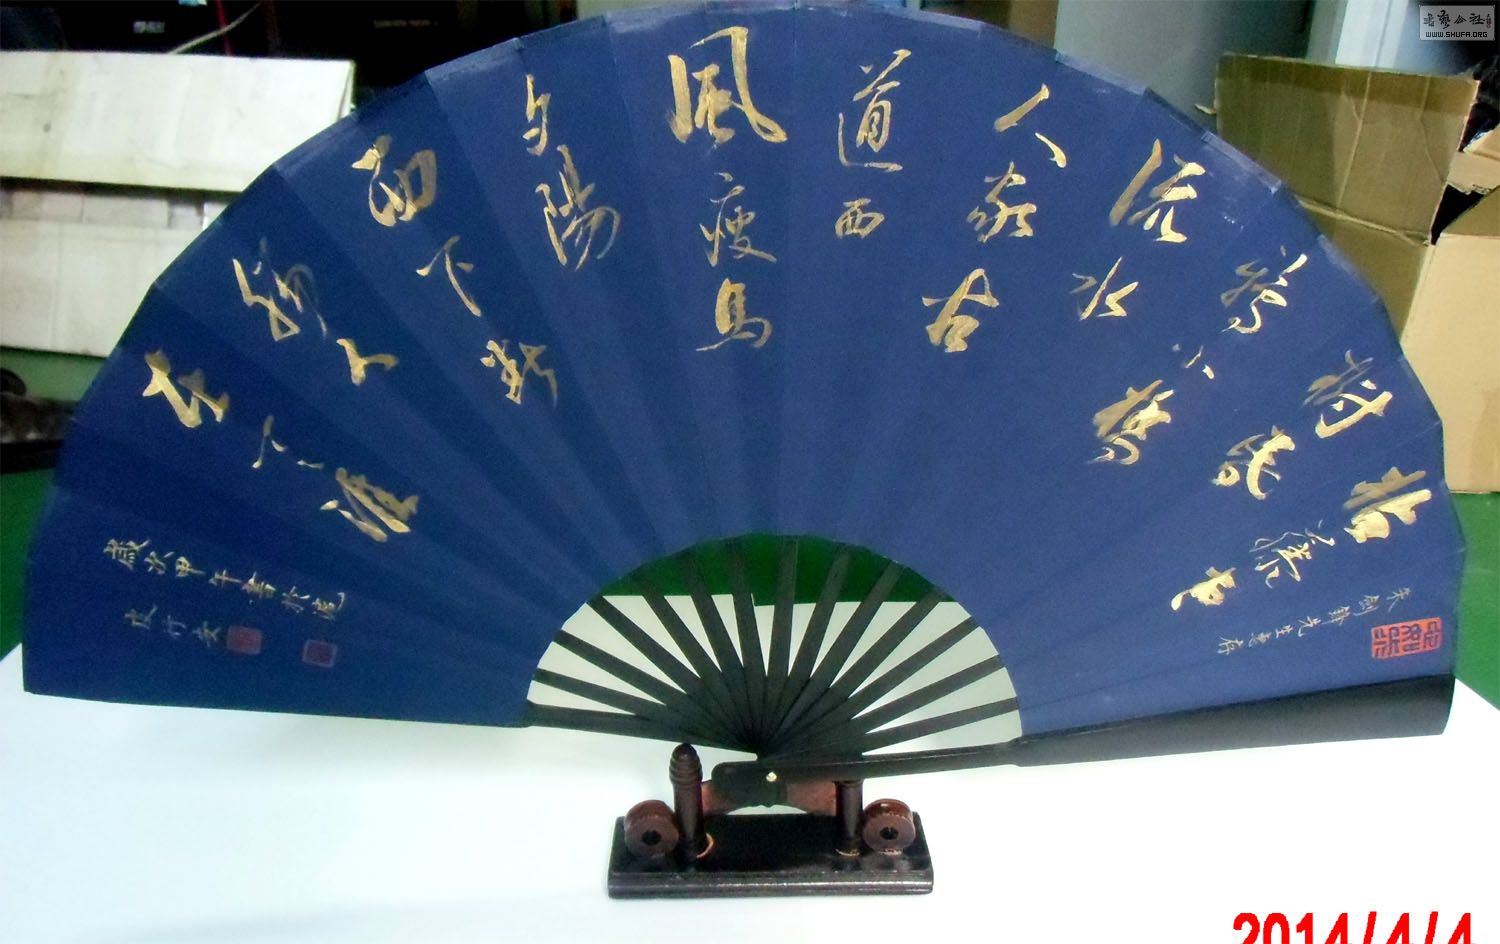 枯藤老
樹昏
鴉小橋
流水
人家古
道西
風瘦馬
夕陽
西下斷
腸人
在天涯
朱劍鋒先生惠存
歲次甲午書於
書藝公社
WWW.SHUFA.ORG
2014/4/4